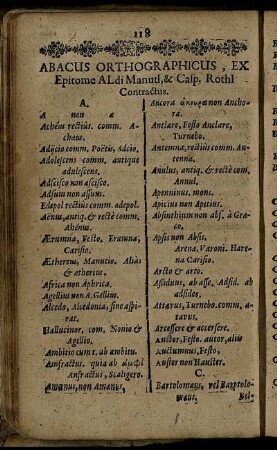 118
ABACUS ORTHOGRAPHICUS, EX
Epitome ALdi Manutl, & Casp. Rothl
Contractus.
A.
A non a
Achém rectiùs. comm. A-
cheus.
Adijcio comm. Poëtis, adcio.
Adolescens comm. antiquè
adulescens.
Adscisco non ascisco.
Adsum non assum.
Edepol rectiùs comm. adepol.
Aënus, antiq. & rectè comm.
Ahénus.
Ærumna, Festo, Erumna,
Carisio.
Æthereus, Manutio. Alias
& atherius.
Africa non Aphrica.
Agellius non A. Gellius.
Alcedo, Alcedonia, sine aspi-
rat.
Hallucinor, com. Nonio &
Agellio.
Ambitio cum t. ab ambitu.
Amfractus. quia ab ἀμφὶ
Anfractus, Scaligero.
Amanus, non Amanus,
Ancora ἄγκυρα non Ancho-
ra.
Antlare, Festo Anclare,
Turnebo.
Antemna, rectiùs comm. An-
tenna.
Anulus, antiq. & rectè com,
Annul.
Apenninus, mons.
Apicius non Apitius.
Absinthium non abs. à Græ-
co.
Apsis non Absis.
Arena, Varoni. Hare-
na Carisio.
Arcto & arto.
Assiduus, ab asse. Adsid. ab
adsideo.
Attavus, Turnebo. comm. a-
tavus.
Arcessere & accersere.
Auctor, Festo, autor, aliis
Auctumnus, Festo,
Auster non Hauster.
C.
Bartolomæus, vel Barptolo-
mæus.
Bel-